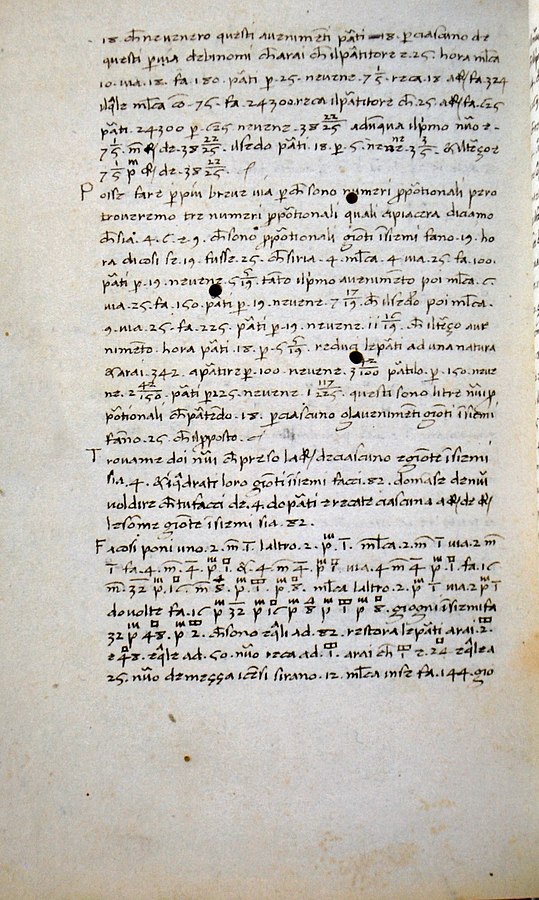 18. ch neuenero questi avenimeti pãti 18. p ciascuno de
questi p uia debinomi ch arai ch il pãtitore e. 25. hora mlca
10. uia. 18. fa. 180. pãti p. 25. neuene. 7 1/5. reca. 18 a R/ fa. 324
il qle mlca cõ. 75. fa. 24300. reca il pãtitore ch. 25. a R/ fa. 625
pãti. 24300 p. 625. neuene. 38 22/25 adunqua il pmo nuo e.
7 1/5. m R/ de. 38 22/25. il sedo pãti. 18. p. 5. neuene. 3 3/5. & il terço e
7 1/5 p R/ de. 38 22/25.
Poisse fare p piu breue uia p ch sono numeri pportionali pero
troueremo tre numeri pportionali quali ci piacera diciamo
ch sia. 4. 6. e. 9. ch sono pportionali gioti isiemi fano. 19. ho
ra di cosi se. 19. fusse. 25. ch siria. 4. mlca. 4 uia. 25. fa. 100.
pãti p. 19. neuene. 5 5/19. tato il pmo auenimeto poi mlca. 6.
uia. 25. fa. 150. pãti p. 19. neuene. 7 17/19. ch il sedo poi mlca.
9. uia. 25. fa. 225. pãti p. 19. neuene. 11 16/19. ch il terço aue
nimeto. hora pãti. 18. p. 5 5/19. reduci le pãti ad una natura
& arai. 342. a pãtire p. 100. neuene. 3 42/100 pãtilo. p. 150. neue
ne. 2 42/150. pãti p 225. neuene. 1 117/225. questi sono li tre nui p
pportionali ch pãtedo. 18. p ciascuno gl auenimeti gioti isiemi
fano. 25. ch il pposto.
Trouame doi nui ch preso la R/ de ciascuno e giote isiemi
sia. 4. & i qdrati loro gioti isiemi facci. 82. domase de nui
uol dire ch tu facci de. 4. do pãti e recate ciascuna a R/ de R/
le some giote isiemi sia. 82.
Fa cosi poni uno. 2. m. 1. laltro. 2. p. 1. mlca. 2. m 1 uia. 2 m
1 fa. 4. m. 4. p. 1. & 4. m 4. p 1 uia. 4 m 4 p. 1. fa. 16
m. 32. p. 16. m. 8. p. 1. p. 8. mlca laltro. 2. p 1 uia. 2 p 1
do uolte fa. 16 p 32 p 16 p 8 p 1 p 8. giogni isiemi fa
32 p 48. p 2. ch sono eqli ad. 82. restora le pãti arai. 2.
e 48. eqle ad. 50. nuo reca ad. 1. arai ch 1 e. 24 eqle a
25. nuo demeçça i cesi sirano. 12. mlca in se fa. 144. gio